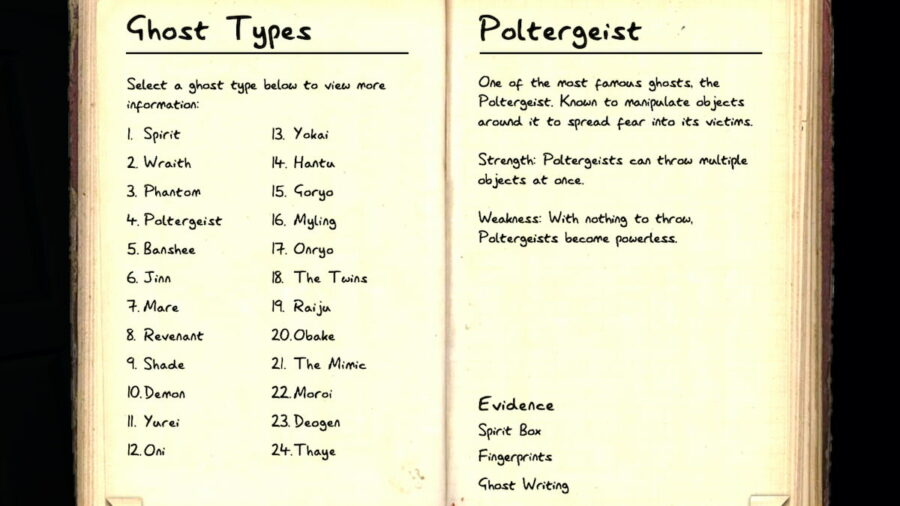 Ghost Types
Select a ghost type below to view more
information:
1. Spirit
2. Wraith
3. Phantom
4. Poltergeist
5. Banshee
6. Jinn
7. Mare
8. Revenant
9. Shade
10. Demon
11. Yurei
12. Oni
13. Yokai
14. Hantu
15. Goryo
16. Myling
17. Onryo
18. The Twins
19. Raiju
20. Obake
21. The Mimic
22. Moroi
23. Deogen
24. Thaye
Poltergeist
One of the most famous ghosts, the
Poltergeist. Known to manipulate objects
around it to spread fear into its victims.
Strength: Poltergeists can throw multiple
objects at once.
Weakness: With nothing to throw,
Poltergeists become powerless.
Evidence
Spirit Box
Fingerprints
Ghost Writing